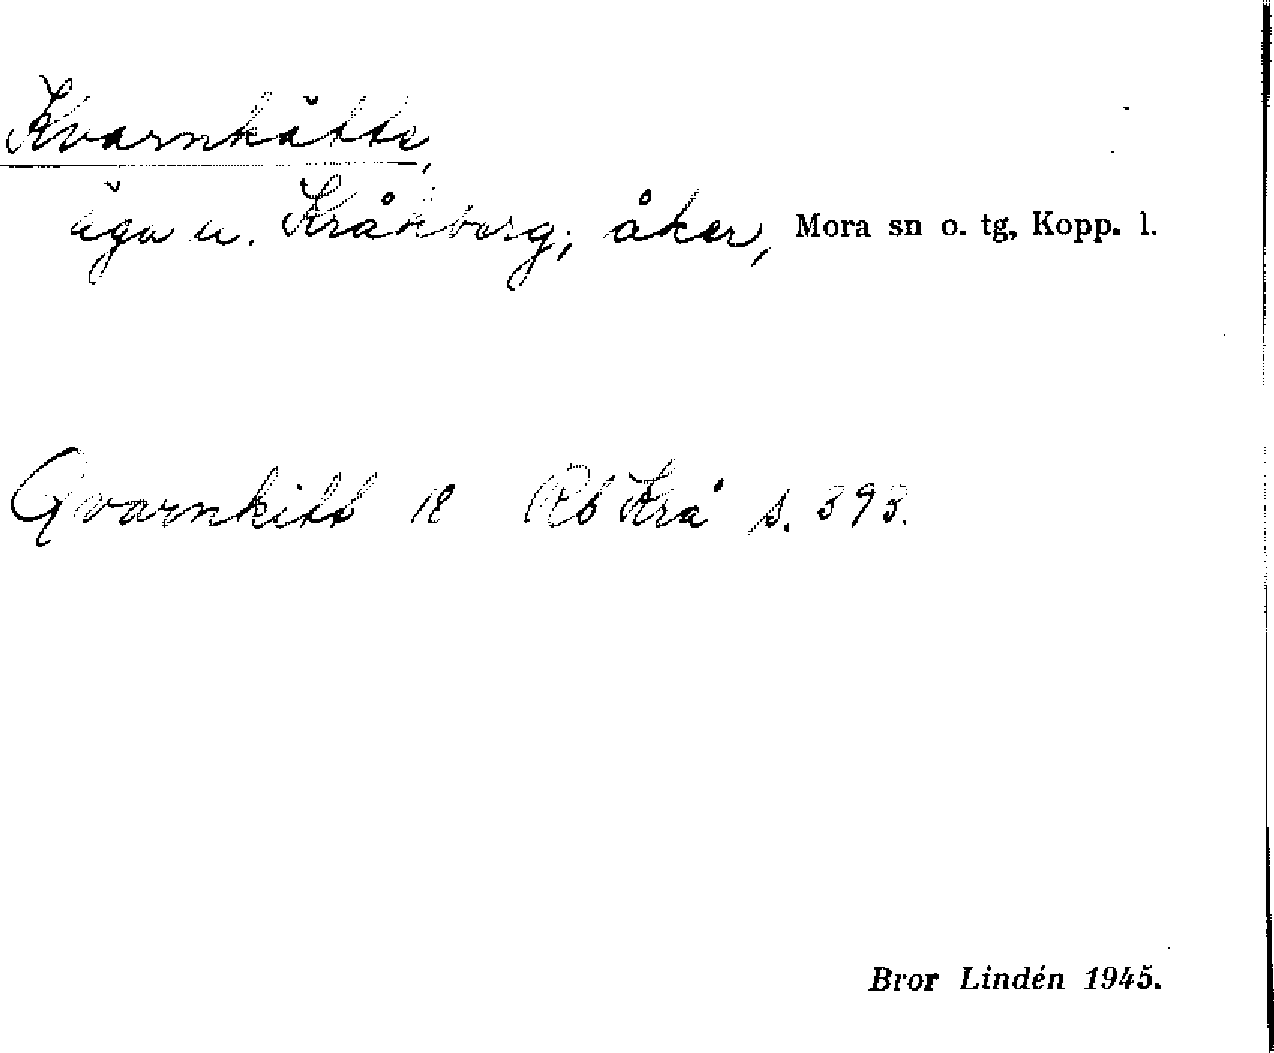 Kvarnkätte,
äga u. Kråkberg; åker, Mora sn o. tg, Kopp. l.
Qvarnkitt 18 Rb Krå s. 393.
Bror Lindén 1945.